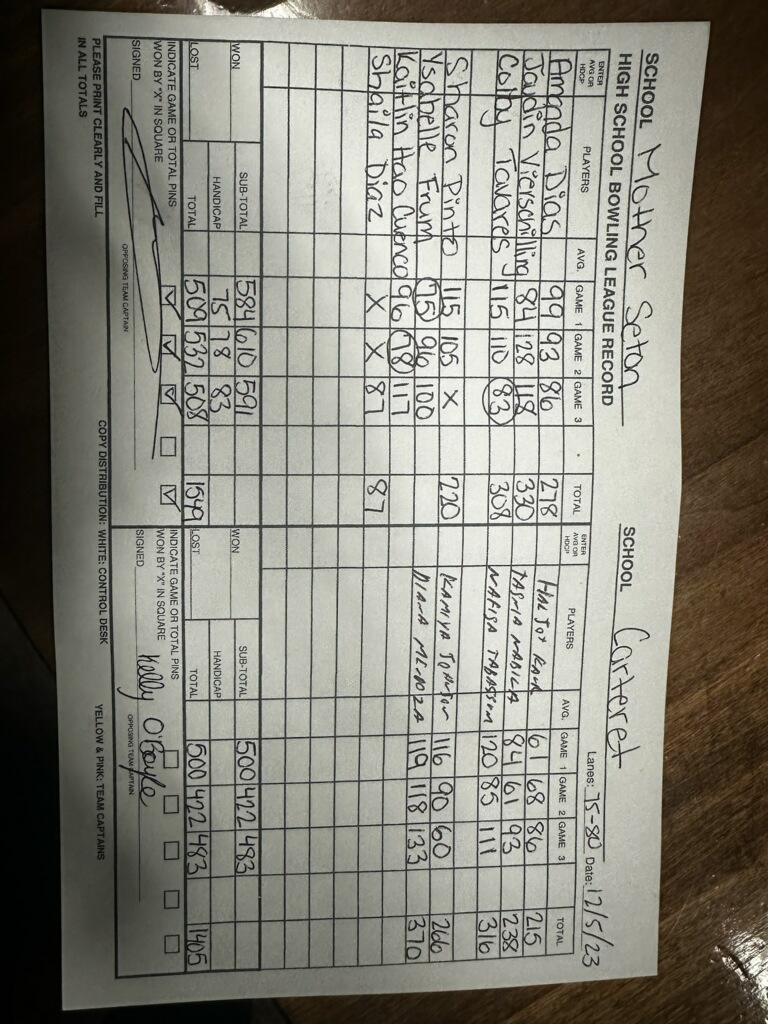 SCHOOL Mother Seton SCHOOL Carteret
HIGH SCHOOL BOWLING LEAGUE RECORD Lanes: 75-80 Date: 12/5/23
ENTER AVG OR HDCP PLAYERS AVG. GAME 1 GAME 2 GAME 3 TOTAL ENTER AVG OR HDCP PLAYERS AVG. GAME 1 GAME 2 GAME 3 TOTAL
Amanda Dias 99 93 86 278 61 68 86 215
Jaydin Vierschilling 84 128 118 330 84 61 93 238
Colby Tavares 115 110 83 308 120 85 111 316
Sharon Pinto 115 105 X 220 116 90 60 266
Ysabelle Frum 75 96 100 119 118 133 370
Kaitlin Hao Cuenco 96 78 117
Shaila Diaz X X 87 87
WON SUB-TOTAL 584 610 591 WON SUB-TOTAL 500 422 483
HANDICAP 75 78 83 HANDICAP
LOST TOTAL 509 532 508 1549 LOST TOTAL 500 422 483 1405
INDICATE GAME OR TOTAL PINS WON BY "X" IN SQUARE INDICATE GAME OR TOTAL PINS WON BY "X" IN SQUARE
SIGNED SIGNED Kelly O'Boyle
OPPOSING TEAM CAPTAIN OPPOSING TEAM CAPTAIN
PLEASE PRINT CLEARLY AND FILL IN ALL TOTALS COPY DISTRIBUTION: WHITE: CONTROL DESK YELLOW & PINK: TEAM CAPTAINS